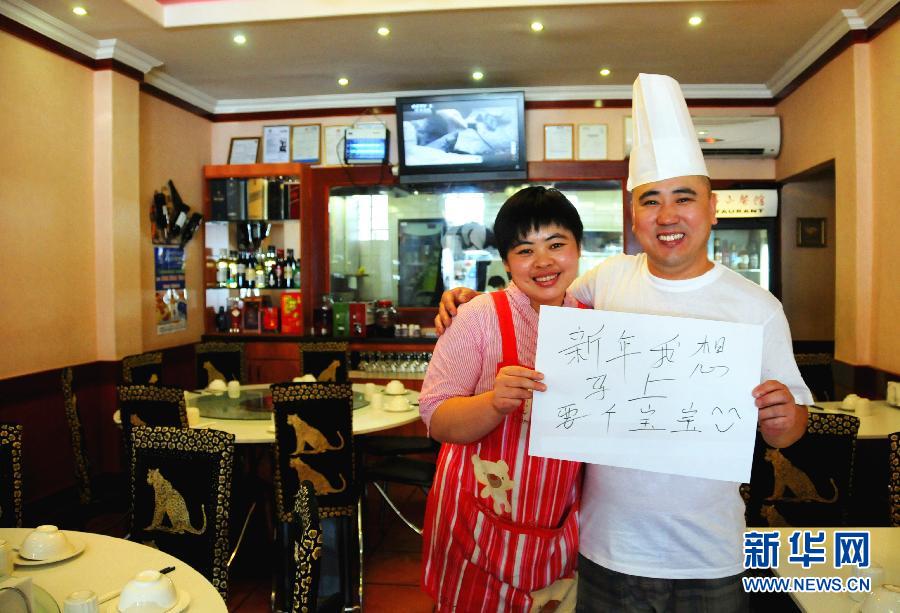 新年我想
马上
要个宝宝
餐馆
RESTAURANT
新华网
WWW.NEWS.CN